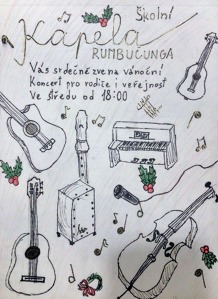 Školní
Kapela
RUMBUCUNGA
Vás srdečně zve na vánoční
Koncert pro rodiče i veřejnost
Ve středu od 18:00